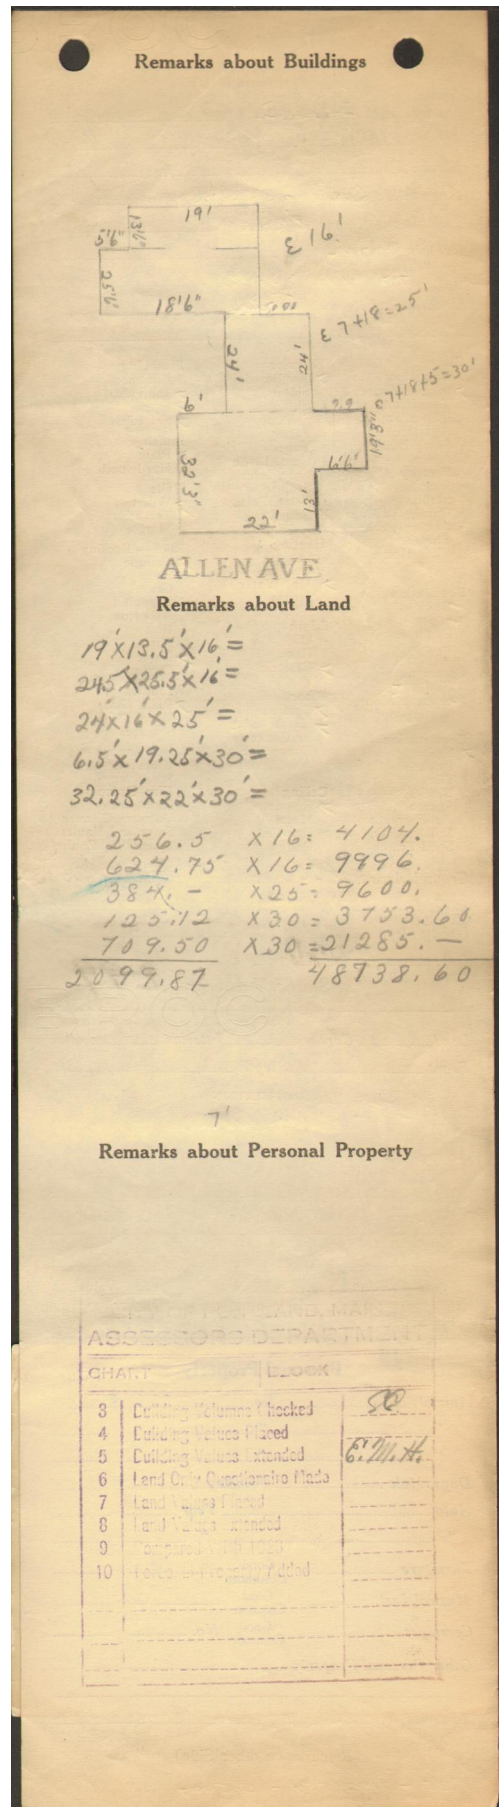 Remarks about Buildings
19'
13'6"
5'6"
ε 16'
25'6"
18'6"
ε 7+18=25'
24'
24'
ε 7+18+5=30'
6'
19'3"
6'6"
32'3"
13'
22'
ALLEN AVE
Remarks about Land
19'×13.5'×16'=
24.5'×25.5'×16'=
24'×16'×25'=
6.5'×19.25'×30'=
32.25'×22'×30'=
256.5 ×16= 4104.
624.75 ×16= 9996.
384.- ×25= 9600.
125.12 ×30= 3753.60
709.50 ×30=21285.—
2099.87 48738.60
7'
Remarks about Personal Property
ASSESSORS DEPARTMENT
CHART BLOCK
3 Building Volumes Checked SC
4 Building Values Placed
5 Building Values Extended E.M.H.
6 Land Only Questionaire Made
7 Land Values Placed
8 Land Values Extended
9 Compared With
10 Property Added